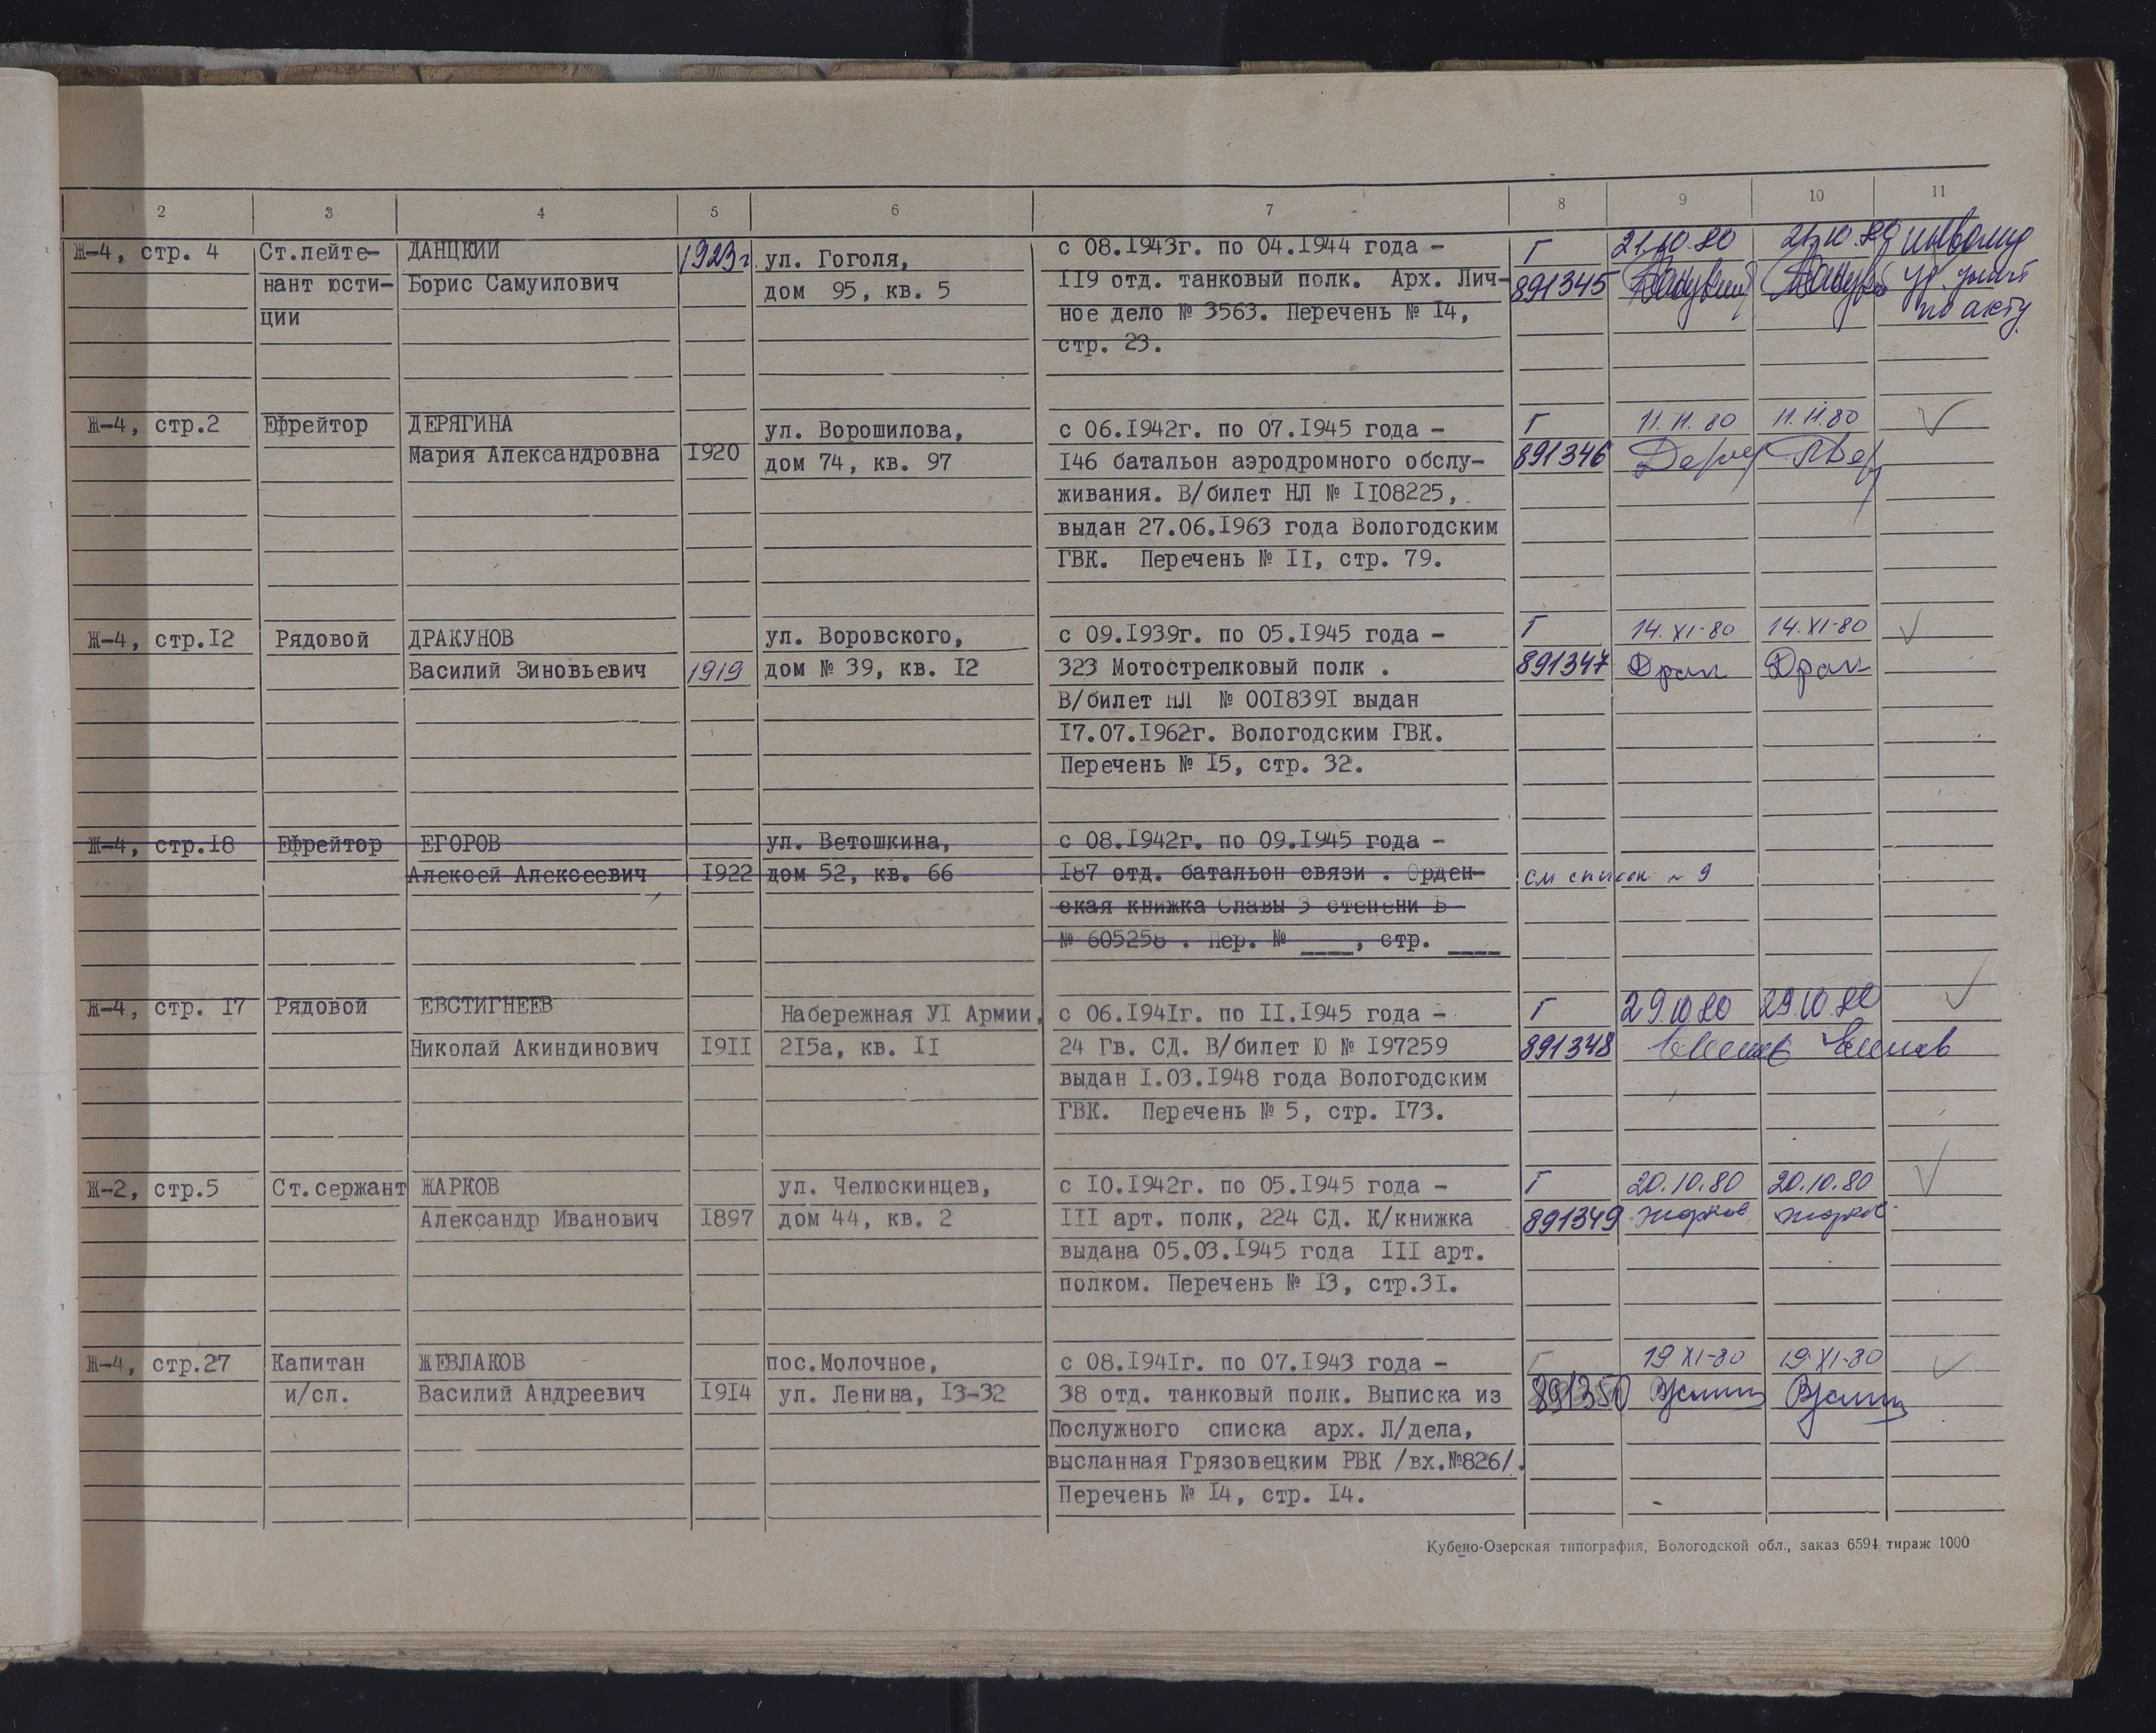 2 3 4 5 6 7 8 9 10 11
Ж-4, стр. 4 Ст.лейте- ДАНЦКИЙ 1923г ул. Гоголя, с 08.1943г. по 04.1944 года - Г 21.10.80 21.10.80 инвалид
нант юсти- Борис Самуилович дом 95, кв. 5 119 отд. танковый полк. Арх. Лич- 891345
ции ное дело № 3563. Перечень № 14, по акту
стр. 23.
Ж-4, стр.2 Ефрейтор ДЕРЯГИНА ул. Ворошилова, с 06.1942г. по 07.1945 года - Г 11.11.80 11.11.80
Мария Александровна 1920 дом 74, кв. 97 146 батальон аэродромного обслу- 891346
живания. В/билет НЛ № 1108225,
выдан 27.06.1963 года Вологодским
ГВК. Перечень № 11, стр. 79.
Ж-4, стр.12 Рядовой ДРАКУНОВ ул. Воровского, с 09.1939г. по 05.1945 года - Г 14.XI-80 14.XI-80
Василий Зиновьевич 1919 дом № 39, кв. 12 323 Мотострелковый полк . 891347 Драк Драк
В/билет НЛ № 0018391 выдан
17.07.1962г. Вологодским ГВК.
Перечень № 15, стр. 32.
Ж-4, стр.18 Ефрейтор ЕГОРОВ ул. Ветошкина, с 08.1942г. по 09.1945 года -
Алексей Алексеевич 1922 дом 52, кв. 66 187 отд. батальон связи . Орден- см список № 9
ская книжка Славы 3 степени Б
№ 605258 . Пер. № ____, стр. ____
Ж-4, стр. 17 Рядовой ЕВСТИГНЕЕВ Набережная У1 Армии, с 06.1941г. по 11.1945 года - Г 29.10.80 29.10.80
Николай Акиндинович 1911 215а, кв. 11 24 Гв. СД. В/билет Ю № 197259 891348
выдан 1.03.1948 года Вологодским
ГВК. Перечень № 5, стр. 173.
Ж-2, стр.5 Ст.сержант ЖАРКОВ ул. Челюскинцев, с 10.1942г. по 05.1945 года - Г 20.10.80 20.10.80
Александр Иванович 1897 дом 44, кв. 2 111 арт. полк, 224 СД. К/книжка 891349 Жарков Жарков
выдана 05.03.1945 года 111 арт.
полком. Перечень № 13, стр.31.
Ж-4, стр.27 Капитан ЖЕВЛАКОВ пос.Молочное, с 08.1941г. по 07.1943 года - Г 19.XI-80 19.XI-80
и/сл. Василий Андреевич 1914 ул. Ленина, 13-32 38 отд. танковый полк. Выписка из 891350
Послужного списка арх. Л/дела,
высланная Грязовецким РВК /вх.№826/.
Перечень № 14, стр. 14.
Кубено-Озерская типография, Вологодской обл., заказ 6594 тираж 1000